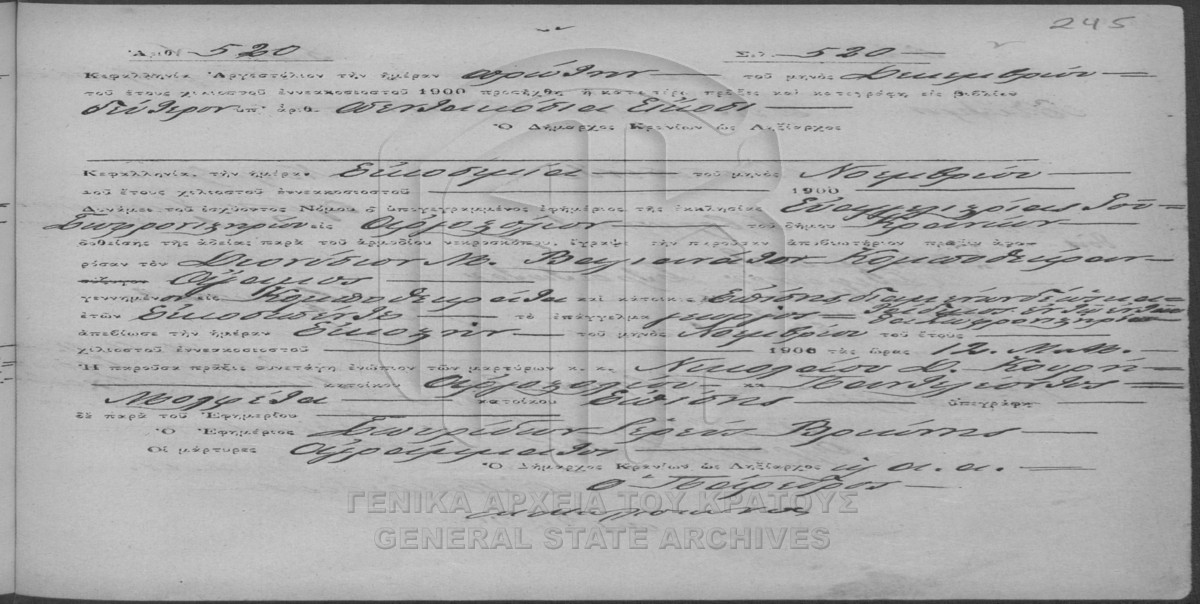 245
Ἀριθ. 520 Σελ. 520
Κεφαλληνία Ἀργοστόλιον τὴν ἡμέραν πρώτην τοῦ μηνὸς Δεκεμβρίου
τοῦ ἔτους χιλιοστοῦ ἐννεακοσιοστοῦ 1900 προσήχθη ἡ κατωτέρω πρᾶξις καὶ κατεγράφη εἰς βιβλίον
δεύτερον ὑπ' ἀριθ. πεντακόσια εἴκοσι
Ὁ Δήμαρχος Κρανίων ὡς Ληξίαρχος
Κεφαλληνία, τὴν ἡμέραν Εἰκοσιμία τοῦ μηνὸς Νοεμβρίου
τοῦ ἔτους χιλιοστοῦ ἐννεακοσιοστοῦ 1900
Δυνάμει τοῦ ἰσχύοντος Νόμου ὁ ὑπογεγραμμένος ἐφημέριος τῆς ἐκκλησίας Εὐαγγελιστρίας Σου-
εἰς Ἀργοστόλιον τοῦ δήμου Κρανίων
δοθείσης τῆς ἀδείας παρὰ τοῦ ἁρμοδίου νεκροσκόπου, ἔγραψε τὴν παροῦσαν ἀποβιωτήριον πρᾶξιν ἀφο-
ρῶσαν τὸν Διονύσιον Μ. Βαλιανάτον Κομποθεκραν-
Ἄγαμος
γεννημένον εἰς Κομποθεκράτα καὶ κάτοικον ἐπίσης
ἐτῶν Εἰκοσιπέντε τὸ ἐπάγγελμα γεωργὸς
ἀπεβίωσε τὴν ἡμέραν Εἰκοστὴν τοῦ μηνὸς Νοεμβρίου τοῦ ἔτους
χιλιοστοῦ ἐννεακοσιοστοῦ 1900 τὰς ὥρας 12. Μ.Μ.
Ἡ παροῦσα πρᾶξις συνετάγη ἐνώπιον τῶν μαρτύρων κ. κ. Νικολάου Δ. Κουρη-
κατοίκου Ἀργοστολίου κα Παντελέοντος
κατοίκου ἐπίσης ὑπεγράφη
δὲ παρὰ τοῦ Ἐφημερίου
Ὁ Ἐφημέριος Σπυρίδων Ἱερεὺς Βριώνης
Οἱ μάρτυρες Ἀγράμματοι
Ὁ Δήμαρχος Κρανίων ὡς Ληξίαρχος κ. α. α.
ὁ Πάρεδρος
ΓΕΝΙΚΑ ΑΡΧΕΙΑ ΤΟΥ ΚΡΑΤΟΥΣ
GENERAL STATE ARCHIVES